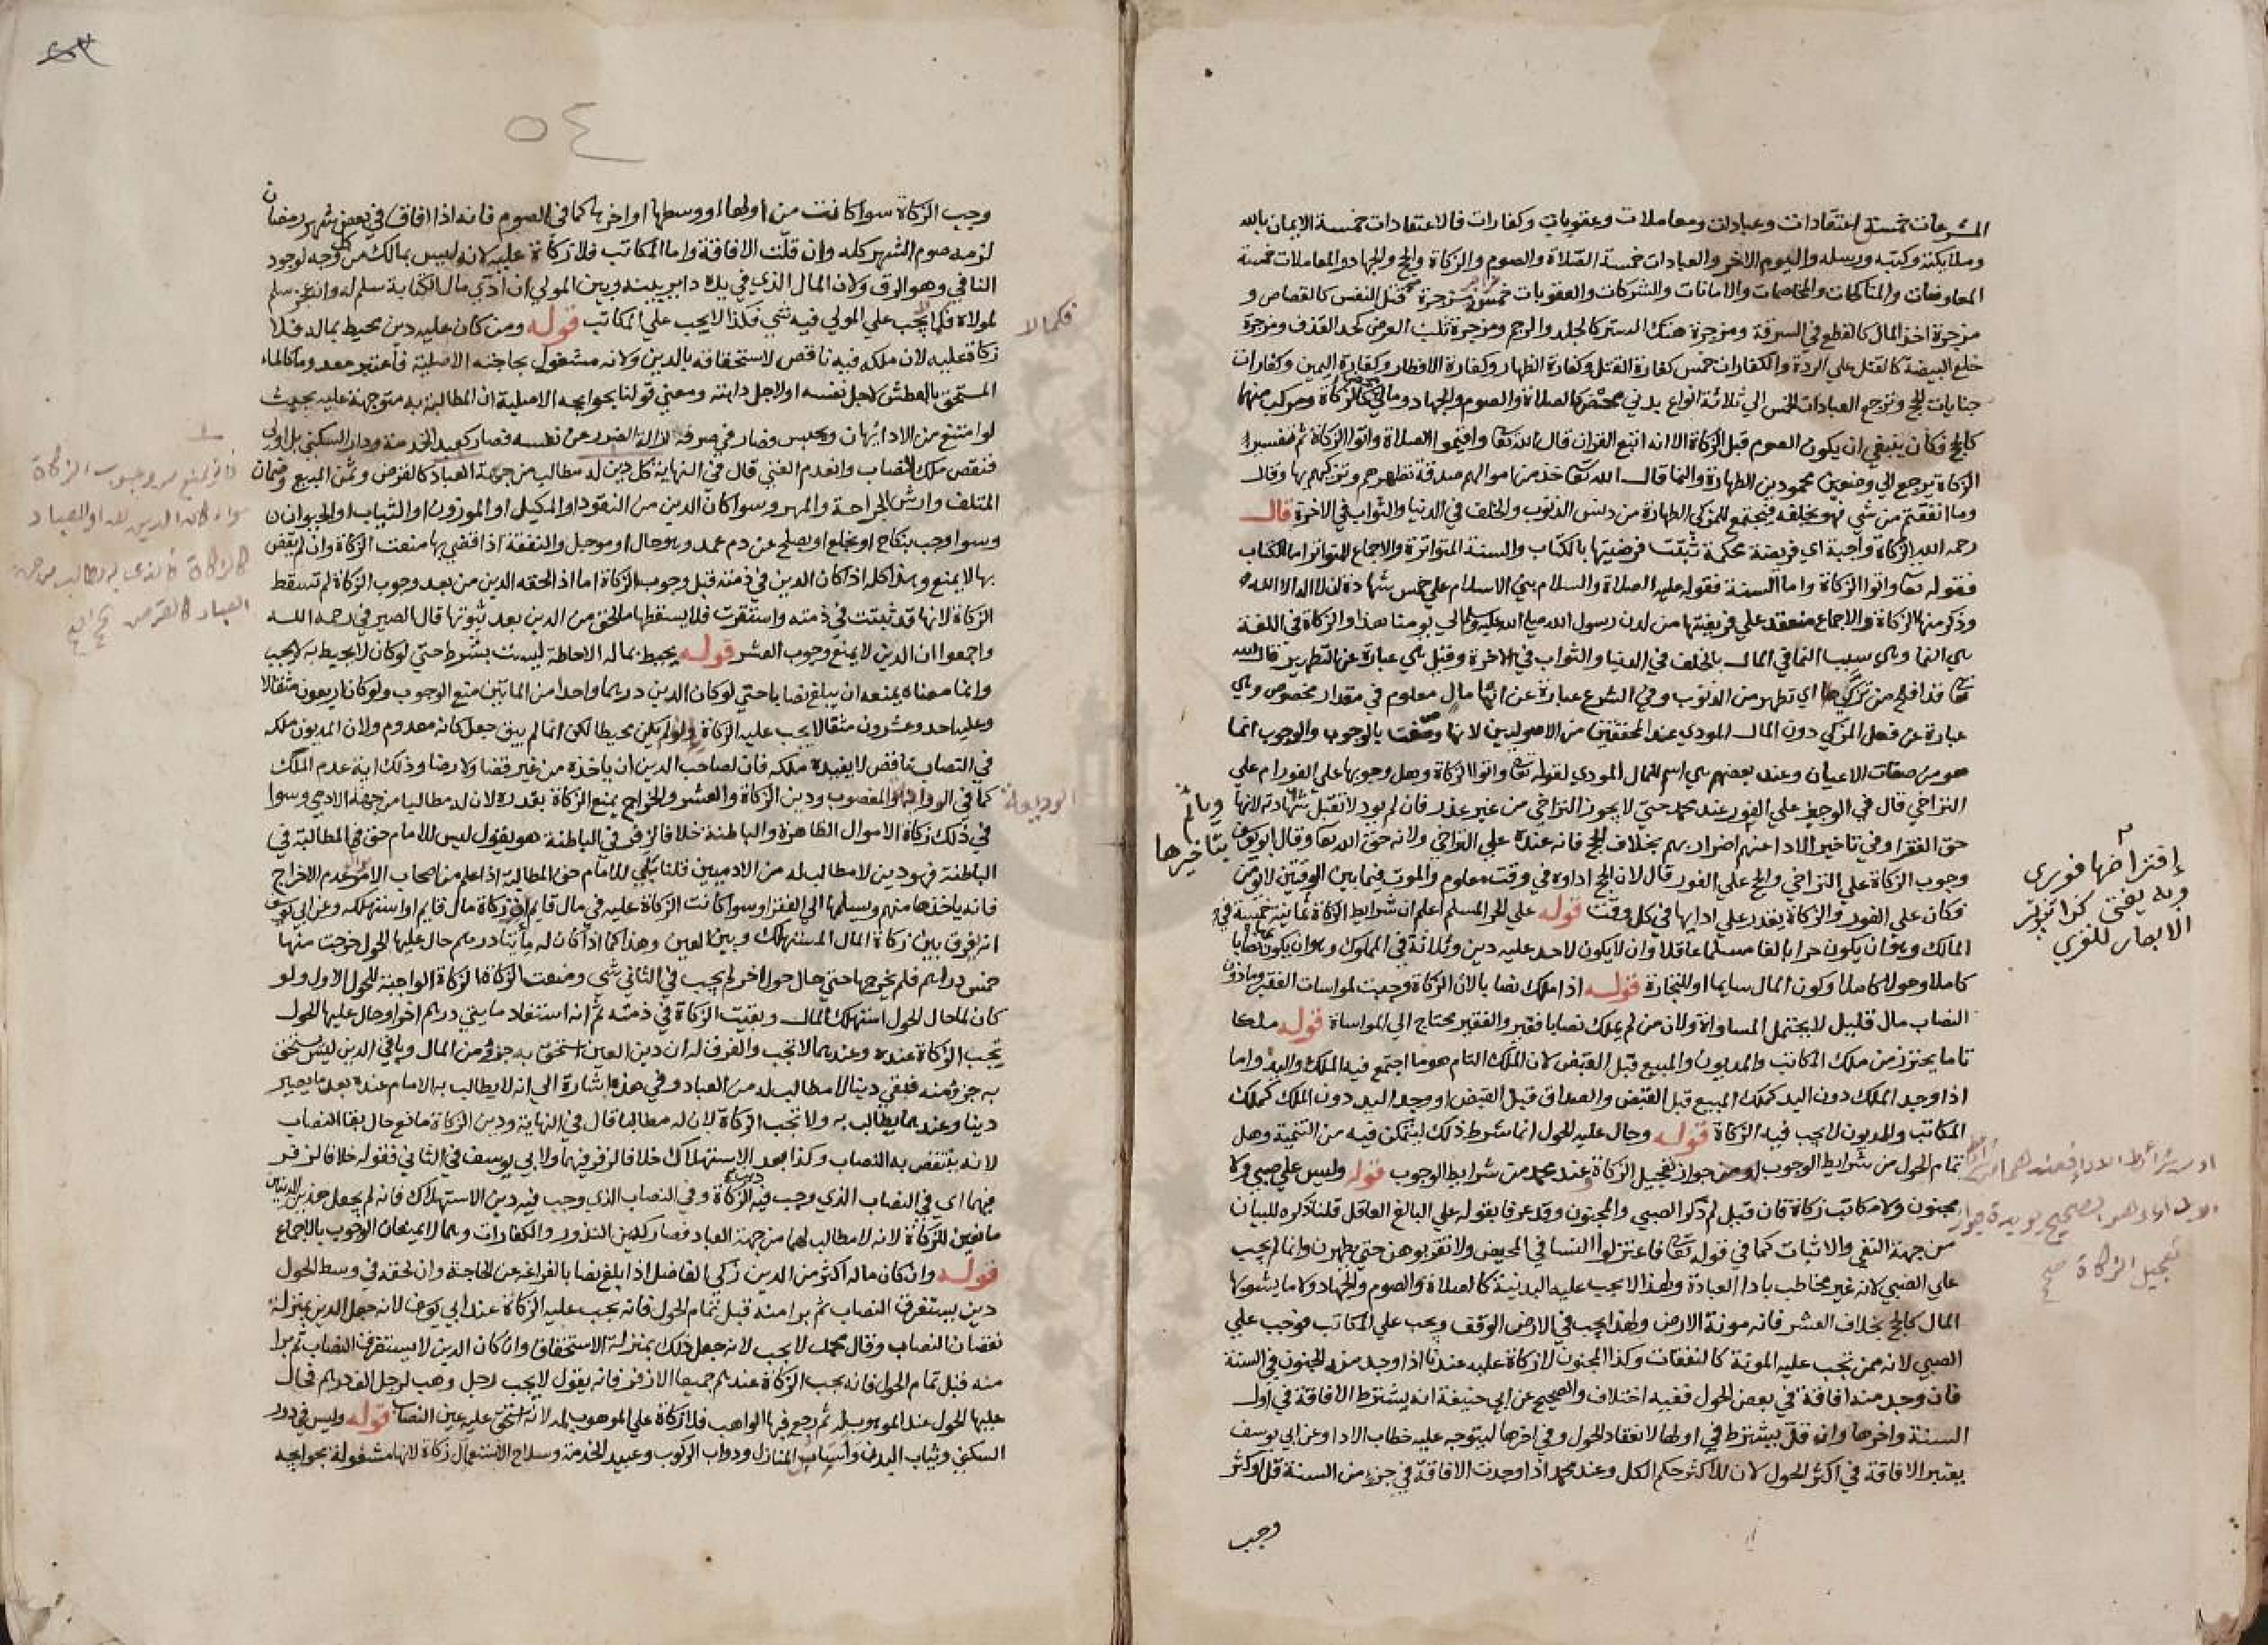 المشروعات خمسة اعتقادات وعبادات ومعاملات وعقوبات وكفارات فالاعتقادات خمسة الايمان بالله
وملايكته وكتبه ورسله واليوم الاخر والعبادات خمسة الصلاة والصوم والزكاة والحج والجهاد والمعاملات خمسة
المعاوضات والمناكحات والمخاصمات والامانات والشركات والعقوبات خمس مزاجر مزجرة قتل النفس كالقصاص و
مزجرة اخذ المال كالقطع في السرقة ومزجرة هتك الستر كالجلد والرجم ومزجرة ثلب العرض كحد القذف ومزجرة
خلع البيضة كالقتل على الردة والكفارات خمس كفارة القتل وكفارة الظهار وكفارة الافطار وكفارة اليمين وكفارات
جنايات الحج وترجع العبادات الخمس الي ثلاثة انواع بدني محض كالصلاة والصوم والجهاد ومالي محض كالزكاة ومركب منهما
كالحج فكان ينبغي ان يكون الصوم قبل الزكاة الا انه اتبع القران قال الله تعا واقيموا الصلاة واتوا الزكاة ثم تفسير
الزكاة يرجع الي وصفين محمودين الطهارة والنما قال الله تعا خذ من اموالهم صدقة تطهرهم وتزكيهم بها وقال
وما انفقتم من شي فهو يخلفه فيجتمع للمزكي الطهارة من دنس الذنوب والخلف في الدنيا والثواب في الاخرة قال
رحمه الله الزكاة واجبة اي فريضة محكمة ثبتت فرضيتها بالكتاب والسنة المتواترة والاجماع المتواتر اما الكتاب
فقوله تعا واتوا الزكاة واما السنة فقوله عليه الصلاة والسلام بني الاسلام علي خمس شهادة ان لا اله الا الله
وذكر منها الزكاة والاجماع منعقد علي فريضتها من لدن رسول الله صلي الله عليه وسلم الي يومنا هذا والزكاة في اللغة
هي النما وهي سبب النما في المال بالخلف في الدنيا والثواب في الاخرة وقيل هي عبارة عن التطهير قال الله
تعا قد افلح من تزكي اي تطهر من الذنوب وفي الشرع عبارة عن ايتا مال معلوم في مقدار مخصوص وهي
عبارة عن فعل المزكي دون المال المودي عند المحققين من الاصوليين لانها وصفت بالوجوب والوجوب انما
هو من صفات الاعيان وعند بعضهم هي اسم للمال المودي لقوله تعا واتوا الزكاة وهل وجوبها علي الفور ام علي
التراخي قال في الوجيز علي الفور عند محمد حتي لا يجوز التراخي من غير عذر فان لم يود لا تقبل شهادته لانها
حق الفقرا وفي تاخير الادا عنهم اضرار بهم بخلاف الحج فانه عنده علي التراخي ولانه حق الله تعا وقال ابو يوسف
وجوب الزكاة علي التراخي والحج علي الفور قال لان الحج اداوه في وقت معلوم والموت فيما بين الوقتين لا يومن
فكان علي الفور والزكاة يقدر علي ادايها في كل وقت قوله علي الحر المسلم اعلم ان شرايط الزكاة ثمانية خمسة في
المالك وهو ان يكون حرا بالغا مسلما عاقلا وان لا يكون لاحد عليه دين وثلاثة في المملوك وهو ان يكون نصابا
كاملا وحولا كاملا وكون المال سايما او للتجارة قوله اذا ملك نصابا لان الزكاة وجبت لمواسات الفقير وما دون
النصاب مال قليل لا يحتمل المساواة ولان من لم يملك نصابا فقير والفقير محتاج الي المواساة قوله ملكا
تاما يحترز من ملك المكاتب والمديون والمبيع قبل القبض لان الملك التام هو ما اجتمع فيه الملك واليد واما
اذا وجد الملك دون اليد كملك المبيع قبل القبض والصداق قبل القبض او وجد اليد دون الملك كملك
المكاتب والمديون لا يجب فيه الزكاة قوله وحال عليه الحول انما شرط ذلك ليتمكن فيه من التنمية وهل
تمام الحول من شرايط الوجوب او من جواز تعجيل الزكاة وعند محمد من شرايط الوجوب قوله وليس علي صبي ولا
مجنون ولا مكاتب زكاة فان قيل لم ذكر الصبي والمجنون وقد عرفا بقوله علي البالغ العاقل قلنا ذكره للبيان
من جهة النفي والاثبات كما في قوله تعا فاعتزلوا النسا في المحيض ولا تقربوهن حتي يطهرن وانما لم يجب
علي الصبي لانه غير مخاطب بادا العبادة ولهذا لا يجب عليه البدنية كالصلاة والصوم والجهاد ولا ما يشوبها
المال كالحج بخلاف العشر فانه مونة الارض ولهذا يجب في الارض الوقف ويجب علي المكاتب فوجب علي
الصبي لانه ممن تجب عليه المونة كالنفقات وكذا المجنون لا زكاة عليه عندنا اذا وجد منه الجنون في السنة
فان وجد منه افاقة في بعض الحول ففيه اختلاف والصحيح عن ابي حنيفة انه يشترط الافاقة في اول
السنة واخرها وان قل يشترط في اولها لانعقاد الحول وفي اخرها ليتوجه عليه خطاب الادا وعن ابي يوسف
يعتبر الافاقة في اكثر الحول لان للاكثر حكم الكل وعند محمد اذا وجدت الافاقة في جزء من السنة قل او كثر
وجب
وياثم
بتاخيرها
إفتراضها فوري
وبه يفتي كذا تنوير
الابصار للغزي
تعجيل الزكاة صح
٥٤
وجب الزكاة سوا كانت من اولها او وسطها او اخرها كما في الصوم فانه اذا افاق في بعض شهر رمضان
لزمه صوم الشهر كله وان قلت الافاقة واما المكاتب فلا زكاة عليه لانه ليس بمالك من كل وجه لوجود
النافي وهو الرق ولان المال الذي في يده داير بينه وبين المولي ان ادي مال الكتابة سلم له وان عجز سلم
لمولاه فكما لا يجب علي المولي فيه شي فكذا لا يجب علي المكاتب قوله ومن كان عليه دين محيط بماله فلا
زكاة عليه لان ملكه فيه ناقص لاستحقاقه بالدين ولانه مشغول بحاجته الاصلية فاعتبر معدوما كالماء
المستحق بالعطش لاجل نفسه او لاجل دابته ومعني قولنا بحوايجه الاصلية ان المطالبة به متوجهة عليه بحيث
لو امتنع من الادا يهان ويحبس فصار في صرفه ازالة الضرر عن نفسه فصار كعبد الخدمة ودار السكني بل اولي
فنقص ملك النصاب وانعدم الغني قال في النهاية كل دين له مطالب من جهة العباد كالقرض وثمن المبيع وضمان
المتلف وارش الجراحة والمهر وسوا كان الدين من النقود او المكيل او الموزون او الثياب او الحيوان
وسوا وجب بنكاح او بخلع او بصلح عن دم عمد وهو حال او موجل والنفقة اذا قضي بها منعت الزكاة وان لم يقض
بها لا يمنع وهذا كله اذا كان الدين في ذمته قبل وجوب الزكاة اما اذا لحقه الدين من بعد وجوب الزكاة لم تسقط
الزكاة لانها قد ثبتت في ذمته واستقرت فلا يسقطها ما لحق من الدين بعد ثبوتها قال الصيرفي رحمه الله
واجمعوا ان الدين لا يمنع وجوب العشر قوله يحيط بماله الاحاطة ليست بشرط حتي لو كان لا يحيط به لا يجب
وانما معناه يمنعه ان يبلغ نصابا حتي لو كان الدين درهما واحدا من الماتين منع الوجوب ولو كان اربعون مثقالا
وعليه احد وعشرون مثقالا يجب عليه الزكاة ولو لم يكن محيطا لكن انما لم يبق جعل كانه معدوم ولان المديون ملكه
في النصاب ناقص لا يفيده ملكه فان لصاحب الدين ان ياخذه من غير قضا ولا رضا وذلك اية عدم الملك
كما في الوديعة والمغصوب ودين الزكاة والعشر والخراج يمنع الزكاة بقدره لان له مطالبا من جهة الادمي وسوا
في ذلك زكاة الاموال الظاهرة والباطنة خلافا لزفر في الباطنة هو يقول ليس للامام حق في المطالبة في
الباطنة فهو دين لا مطالب له من الادميين قلنا بلي للامام حق المطالبة اذا علم من اصحاب الاموال عدم الاخراج
فانه ياخذها منهم ويسلمها الي الفقرا وسوا كانت الزكاة عليه في مال قايم او زكاة مال قايم او استهلكه وعن ابي يوسف
انه يفرق بين زكاة المال المستهلك وبين العين وهذا كما اذا كان له مايتا درهم حال عليها الحول خرجت منها
خمس دراهم فلم يخرجها حتي حال حول اخر لم يجب في الثاني شي ومنعت الزكاة الزكاة الواجبة للحول الاول ولو
كان لما حال الحول استهلك المال وبقيت الزكاة في ذمته ثم انه استفاد مايتي درهم اخر وحال عليها الحول
تجب الزكاة عنده وعندهما لا تجب والفرق له ان دين العين استحق به جزو من المال وباقي الدين ليس يستحق
به جزو منه فبقي دينا لا مطالب له من العباد وفي هذه اشارة الي انه لا يطالب به الامام عنده بعد ما يصير
دينا وعندهما يطالب به ولا تجب الزكاة لان له مطالبا قال في النهاية ودين الزكاة مانع حال بقا النصاب
لانه ينتقص به النصاب وكذا بعد الاستهلاك خلافا لزفر فيهما ولابي يوسف في الثاني فقوله خلافا لزفر
فيهما اي في النصاب الذي وجب فيه الزكاة وفي النصاب الذي وجب فيه دين الاستهلاك فانه لم يجعل هذين الدينين
مانعين للزكاة لانه لا مطالب لهما من جهة العباد فصار كدين النذور والكفارات وهما لا يمنعان الوجوب بالاجماع
قوله وان كان ماله اكثر من الدين زكي الفاضل اذا بلغ نصابا بالفراغه عن الحاجة وان لحقه في وسط الحول
دين يستغرق النصاب ثم برا منه قبل تمام الحول فانه يجب عليه الزكاة عند ابي يوسف لانه جعل الدين بمنزلة
نقصان النصاب وقال محمد لا يجب لانه جعل ذلك بمنزلة الاستحقاق وان كان الدين لا يستغرق النصاب ثم برا
منه قبل تمام الحول فانه يجب الزكاة عندهم جميعا الا زفر فانه يقول لا يجب رجل وهب لرجل الف درهم فحال
عليها الحول عند الموهوب له ثم رجع فيها الواهب فلا زكاة علي الموهوب له لانه استحق عليه عين النصاب قوله وليس في دور
السكني وثياب البدن واسباب المنازل ودواب الركوب وعبيد الخدمة وسلاح الاستعمال زكاة لانها مشغولة بحوايجه
فكما لا
الوديعة